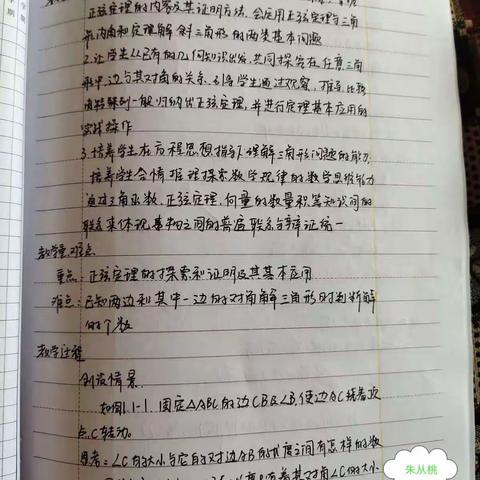 正弦定理的内容及其证明方法,会应用正弦定理与三角
形内角和定理解斜三角形的两类基本问题
2.让学生从已有的几何知识出发,共同探究在任意三角
形中,边与其对角的关系,引导学生通过观察,推导,比较
由特殊到一般归纳出正弦定理,并进行定理基本应用的
实践操作
3.培养学生在方程思想指导下理解三角形问题的能力
培养学生合情推理探索数学规律的数学思维能力
通过三角函数,正弦定理,向量的数量积等知识间的
联系来体现事物之间的普遍联系与辩证统一
教学重、难点
重点:正弦定理的探索和证明及其基本应用
难点:已知两边和其中一边的对角解三角形时判断解
的个数
教学过程
创设情景
如图1.1-1,固定△ABC的边CB及∠B,使边AC绕着顶
点C转动。
思考:∠C的大小与它的对边AB的长度之间有怎样的数
着其对角∠C的大小
朱从桃